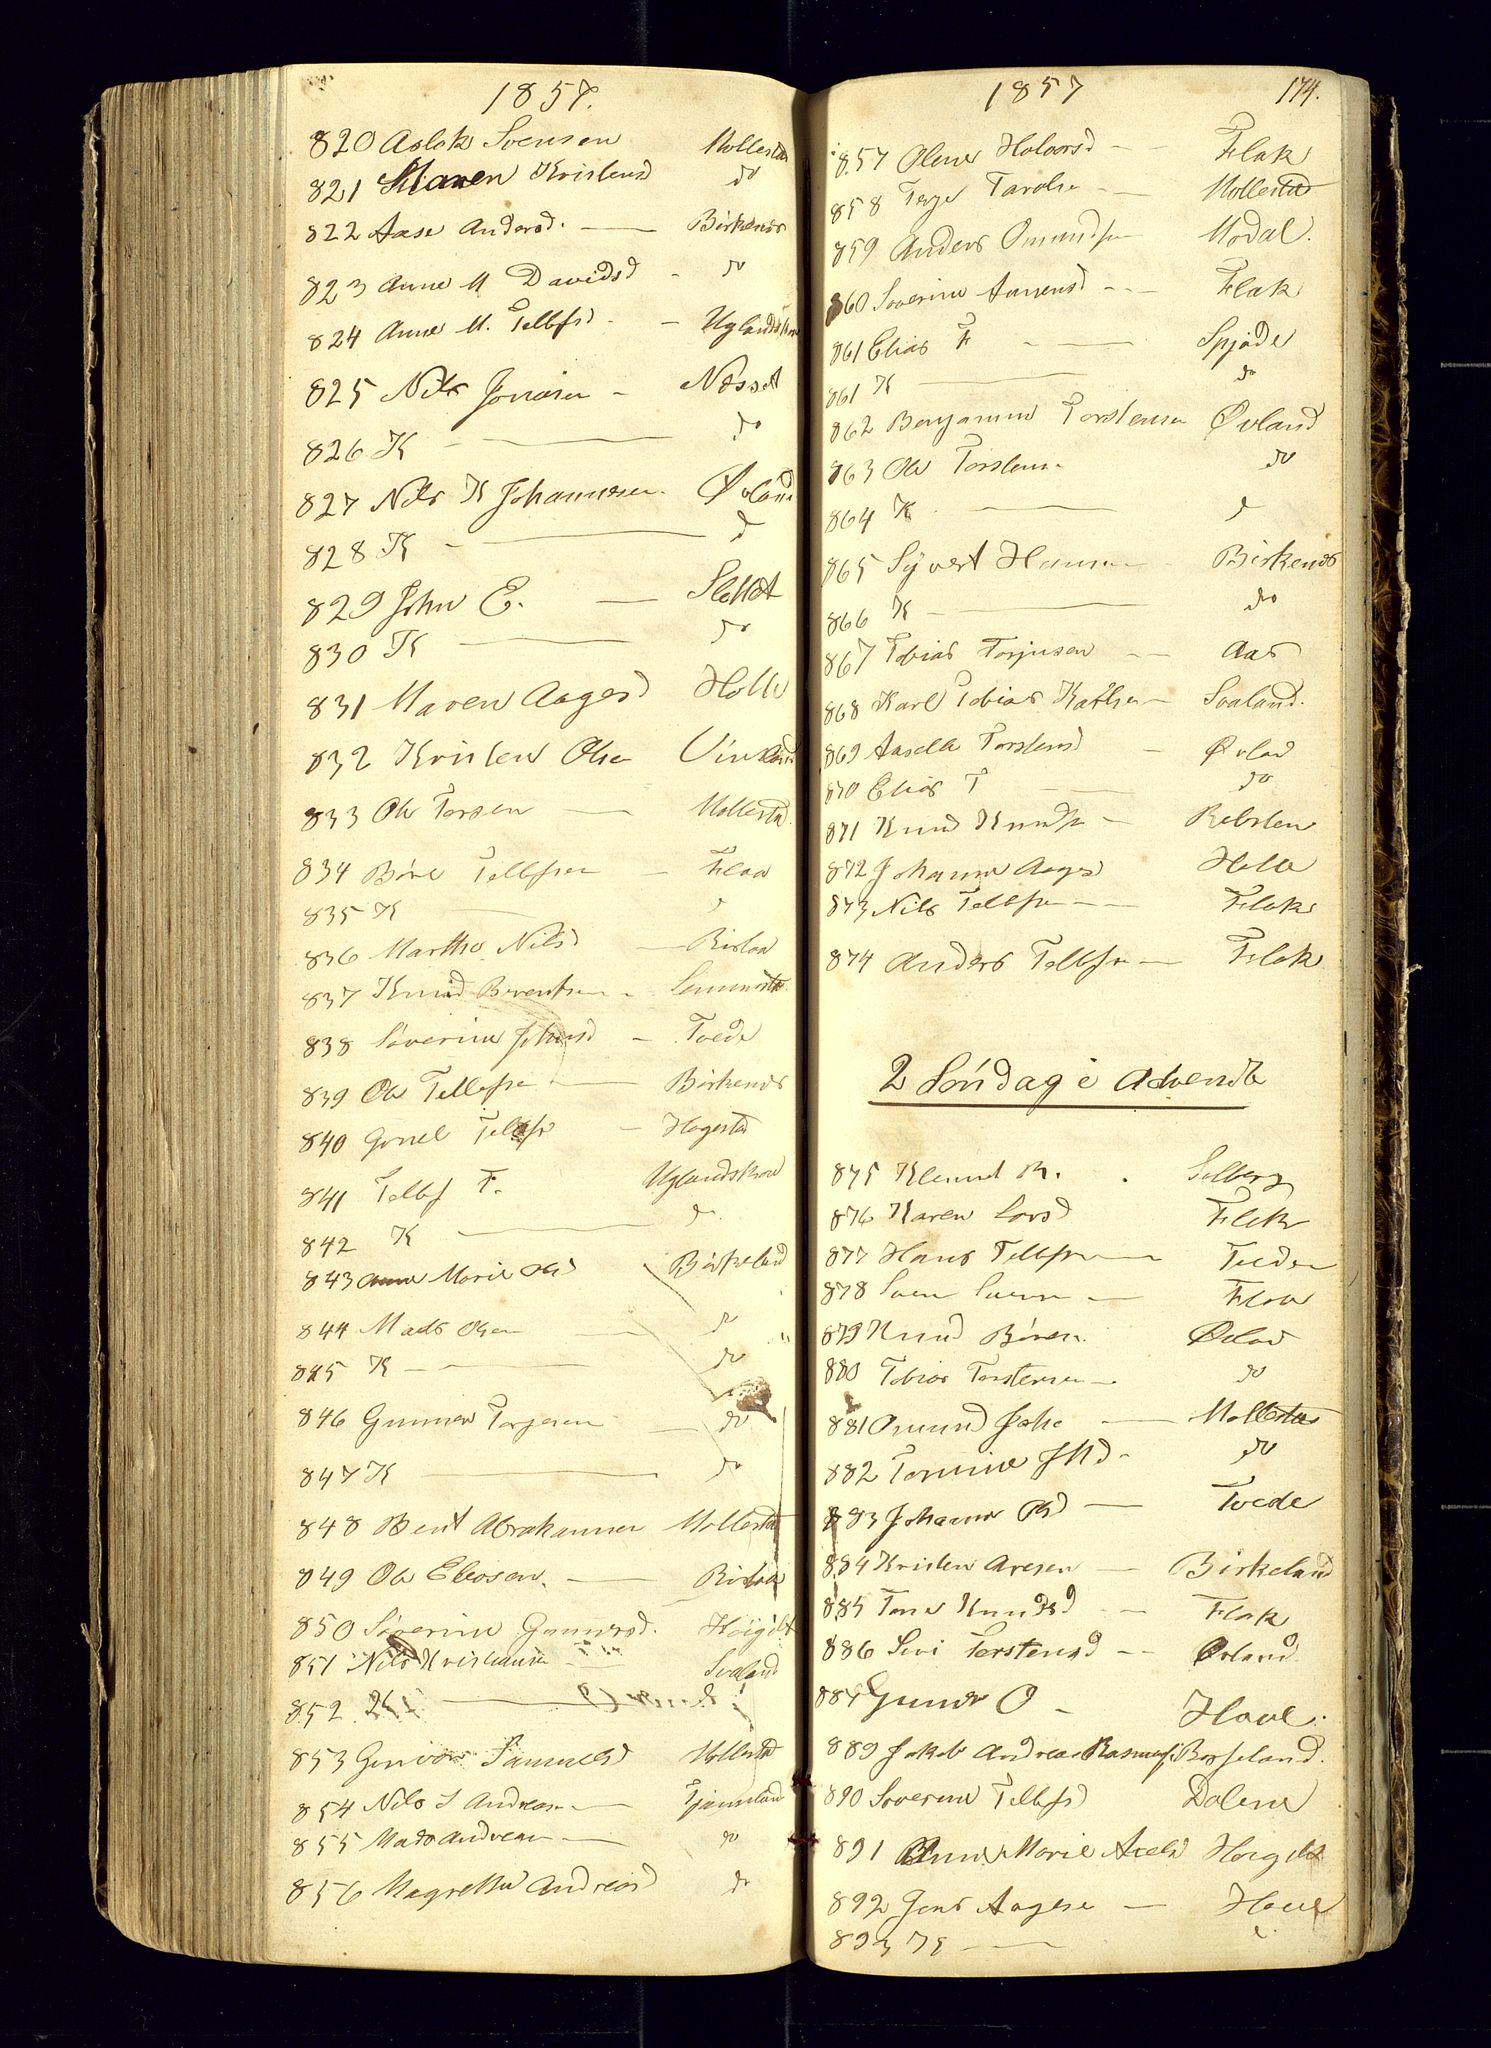 1857.
820 Aslak Svensen Mollestad
821 Maren Kristensd do
822 Aase Andersd. Birkenæs
823 Anne M Davidsd do
824 Anne M. Tellefsd Uglandskow
825 Nils Jonasen Næsset
826 K do
827 Nils K Johannesen Øvland
828 K d
829 John E. Slettet
830 K do
831 Maren Aagesd Holle
832 Kristen Olsen
833 Ole Torsen Mollestad
834 Børe Tellefsen Flaa
835 K
836 Marthe Nilsd Risløa
837 Knud Berentsen
838 Søverine Johnsd Tvede
839 Ole Tellefsen Birkenæs
840 Gonel Tellefsd Hagestad
841 Tellef F. Uglandskow
842 K d
843 Anne Marie Olsd Birkeland
844 Mads Olsen do
845 K do
846 Gunner Torjesen do
847 K do
848 Bent Abrahamsen Mollestad
849 Ole Eliosen. Risløa
850 Søverine Gunnersd. Høigilt
851 Nils Kristiansen Svaland
852 K d
853 Gunvor Samuelsd Mollestad
854 Nils S Andreasen
855 Mads Andreasen do
856 Magrethe Andreasd do
1857 174.
857 Olene Halvorsd Flak
858 Terje Taralsen Mollestad
859 Anders Omundsen Modal.
860 Soverine Aanensd Flak
861 Elias F Spjøde
861 K do
862 Benjamin Torstensen Øvland
863 Ole Torstensen do
864 K d
865 Syvert Hansen Birkenæs
866 K do
867 Tobias Torjusen Aas
868 Karl Tobias Svaland.
869 Aasella Torstensd Øvland
870 Elias T do
871 Knud Knudsen Rebsten
872 Johanne Aagesd Holle
873 Nils Tellefsen Flak
874 Anders Tellefsen Flak
2 Søndag i Advendte
875 Klemet R. Solberg
876 Karen Larsd Flak
877 Hans Tellefsen Tveden
878 Sven Svensen Flaa
879 Knud Børesen Øvland
880 Tobias Torstensen do
881 Omund Mollestad
882 Tomine do
883 Johanne Tvede
884 Kristen Aresen Birkeland
885 Tone Knudsd Flak
886 Sivi Torstensd Øvland
887 Gunder O Hove.
889 Jakob Andreas Rasmus. Berseland.
890 Soverine Tellefsd Dalene
891 Anne Marie Axelsd Høigilt
892 Jens Aagesen Hove
893 K